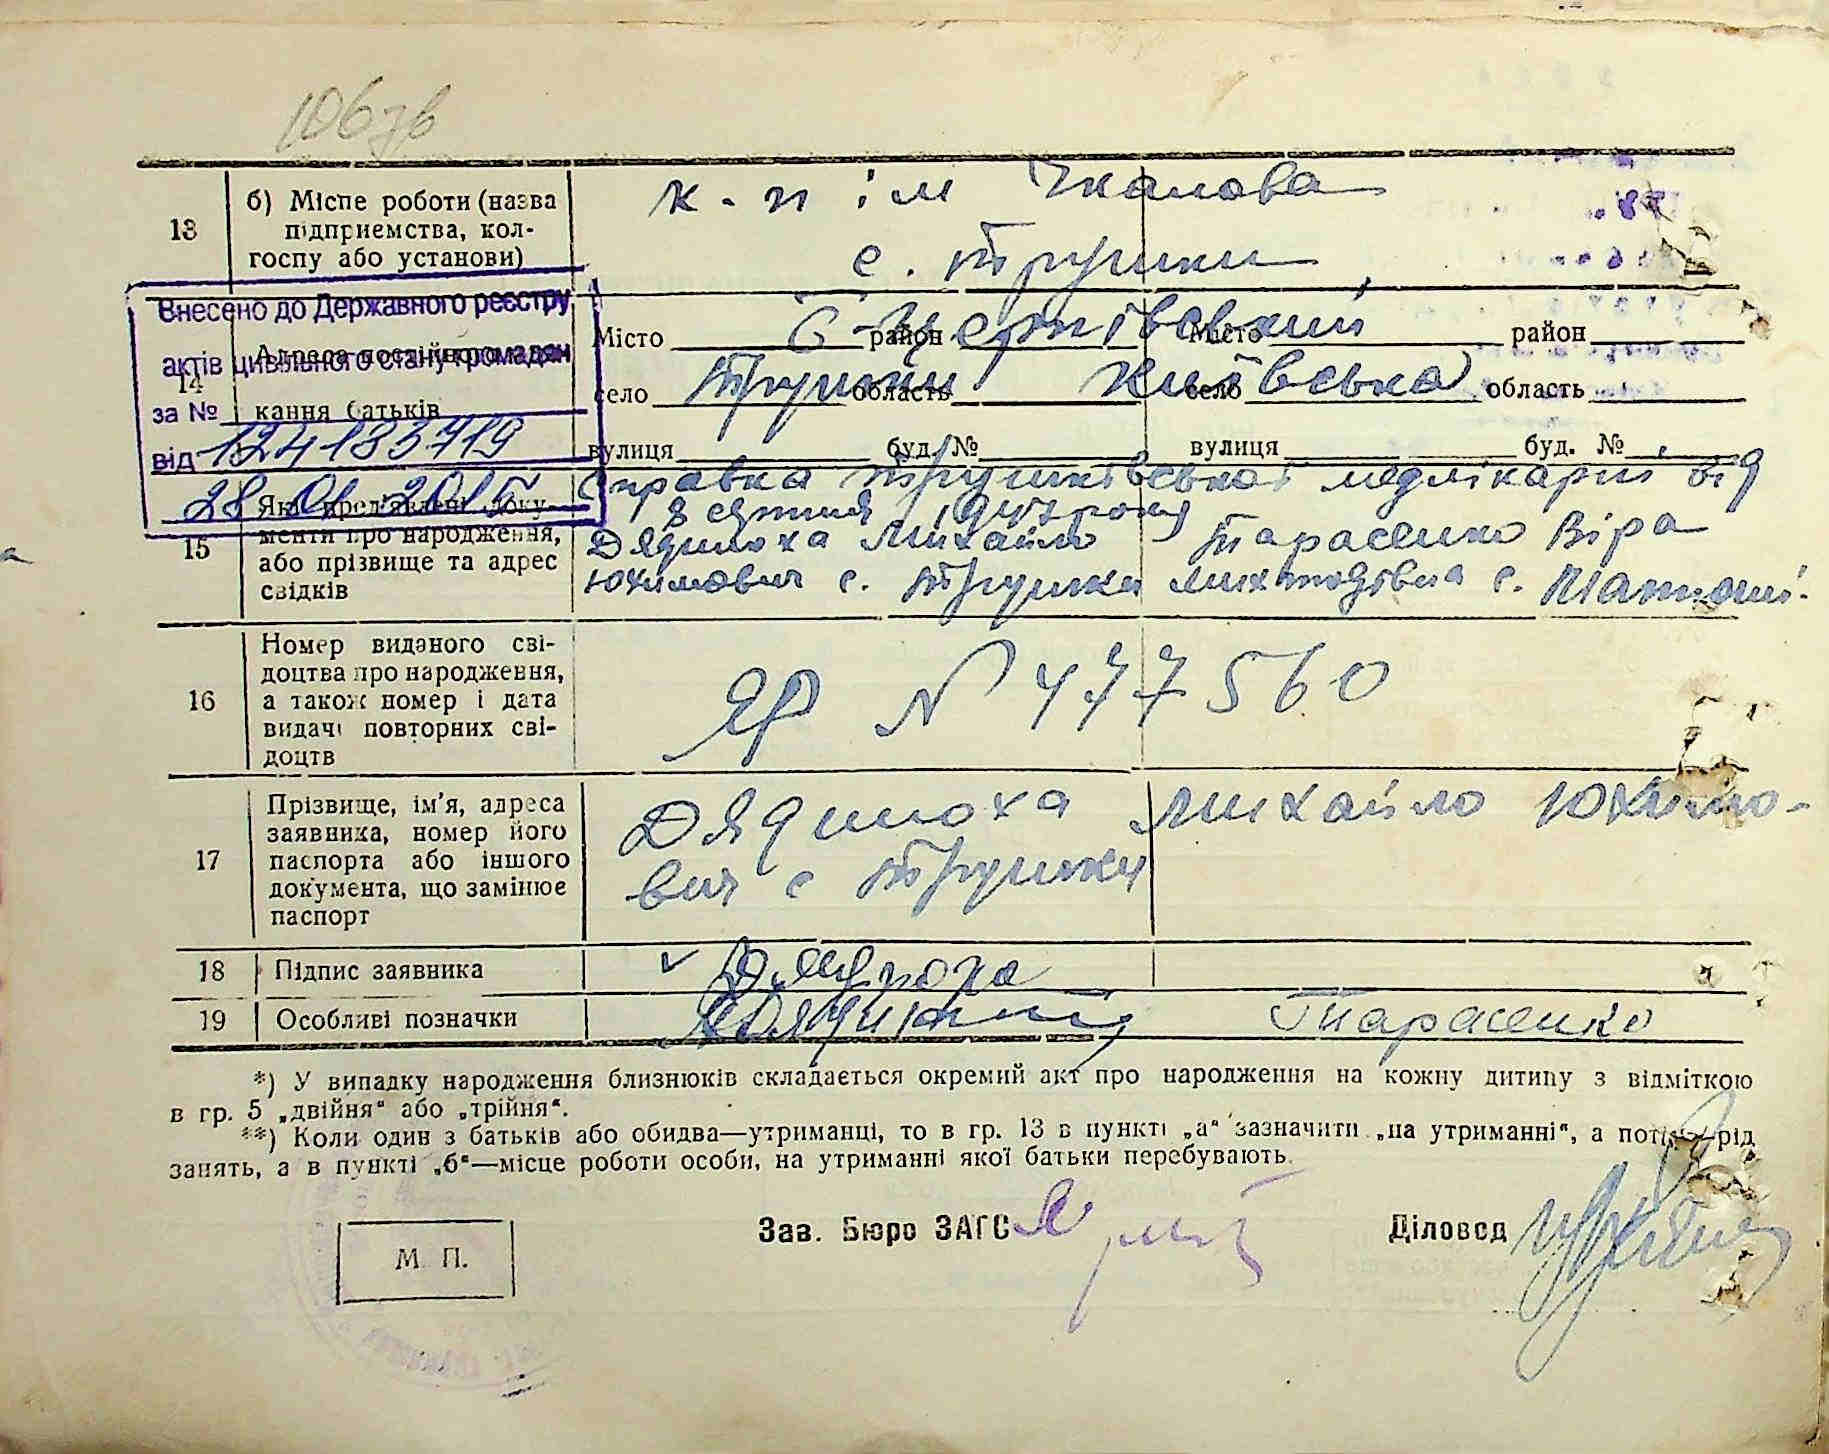 1067в
13
б) Місце роботи (назва
підприємства, кол-
госпу або установи)
к-п ім Чкалова
с. Трушки
Внесено до Державного реєстру
актів цивільного стану громадян
за №
від 124183719
28 01 2015
14
Адреса постійного
кання батьків
Місто район Місто район
Б-Церківський
село область село область
Трушки Київська
вулиця буд. № вулиця буд. №
15
Які пред'явлені доку-
менти про народження,
або прізвище та адрес
свідків
Справка Трушківської медлікарні від
8 серпня
Дядюноха Михайло Тарасенко Віра
Юхимович с. Трушки с.
16
Номер виданого сві-
доцтва про народження,
а також номер і дата
видачі повторних сві-
доцтв
ЯР № 477560
17
Прізвище, ім'я, адреса
заявника, номер його
паспорта або іншого
документа, що замінює
паспорт
Михайло Юхимо-
вич с Трушки
18 Підпис заявника
19 Особливі позначки
Тарасенко
*) У випадку народження близнюків складається окремий акт про народження на кожну дитину з відміткою
в гр. 5 „двійня“ або „трійня“.
**) Коли один з батьків або обидва—утриманці, то в гр. 13 в пункті „а“ зазначити „на утриманні“, а потім рід
занять, а в пункті „б“—місце роботи особи, на утриманні якої батьки перебувають.
М. П.
Зав. Бюро ЗАГС
Діловод